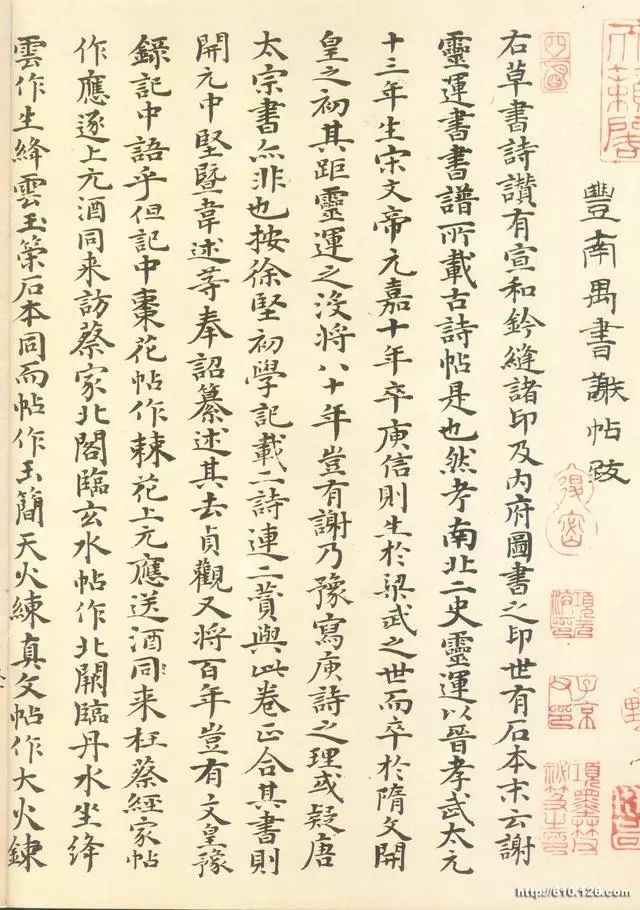 豐南禺書謝帖跋
右草書詩讚有宣和鈐縫諸印及內府圖書之印世有石本末云謝
靈運書書譜所載古詩帖是也然考南北二史靈運以晉孝武太元
十三年生宋文帝元嘉十年卒庾信則生於梁武之世而卒於隋文開
皇之初其距靈運之沒將八十年豈有謝乃豫寫庾詩之理或疑唐
太宗書亦非也按徐堅初學記載二詩連二贊與此卷正合其書則
開元中堅暨韋述等奉詔纂述其去貞觀又將百年豈有文皇豫
錄記中語乎但記中棗花帖作棘花上元應送酒同来枉蔡經家帖
作應逐上元酒同来訪蔡家北閣臨玄水帖作北闕臨丹水坐絳
雲作生絳雲玉策石本同而帖作玉簡天火練真文帖作大火鍊
天籟閣
項墨林
子京
http://610.126.com/